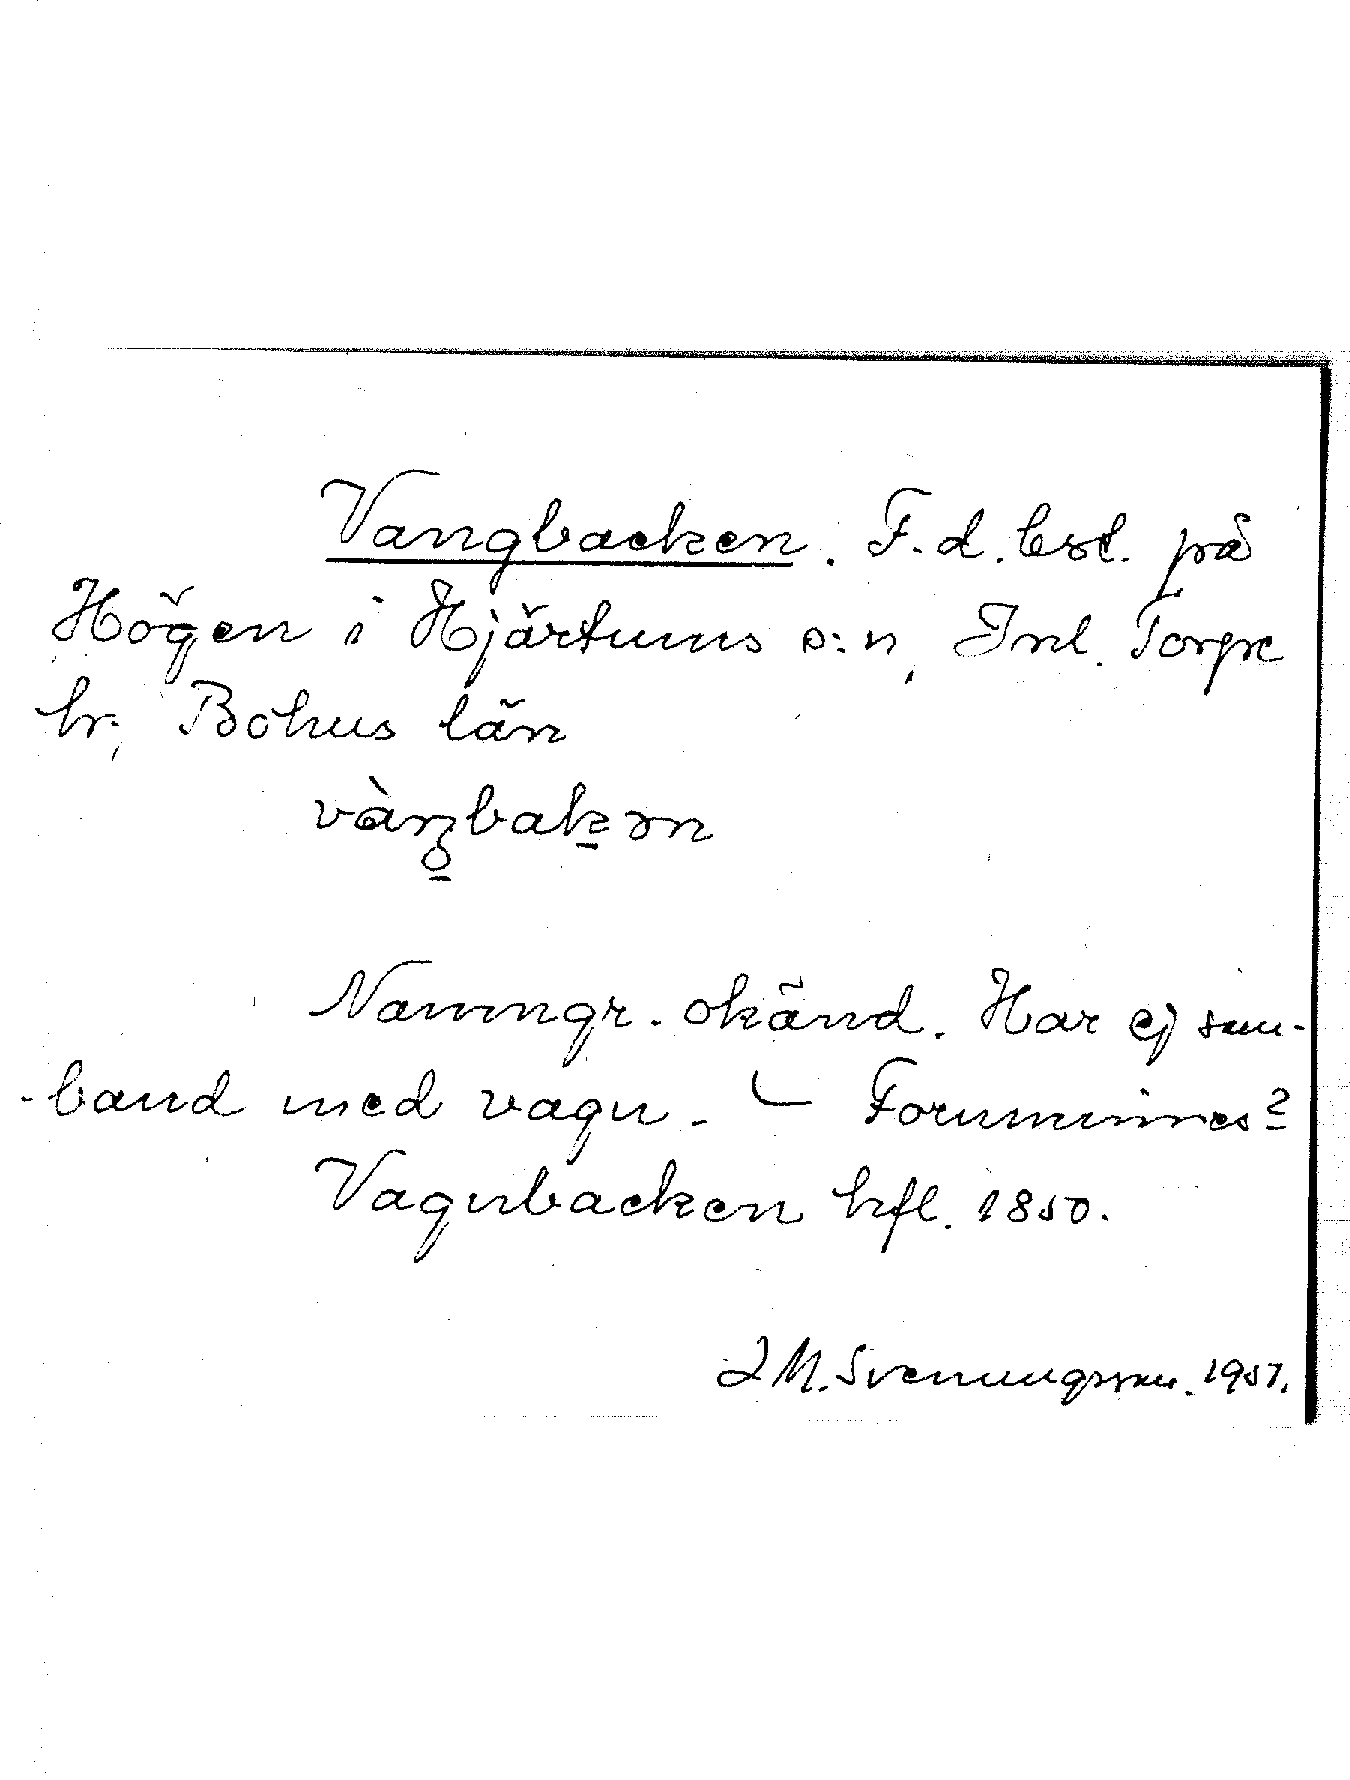 Vangbacken. F.d. bst. på
Högen i Hjärtums s:n, Inl. Torpe
hr, Bohus län
Namngr. okänd. Har ej sam-
-band med vagn. – Fornminnes?
Vagnbacken hfl. 1850.
J M. Svenungsson. 1957.